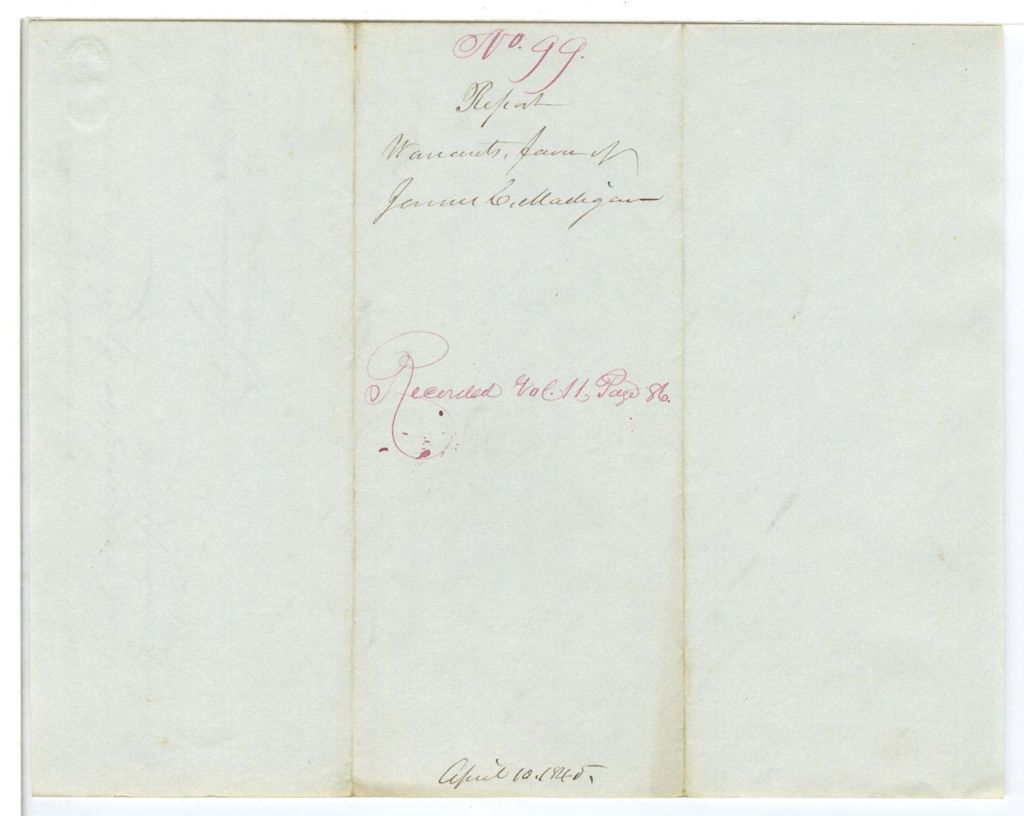 No. 99.
Report
Warrants, favor of
James C. Madigan
Recorded Vol. 11, Page 86.
April 10. 1845.